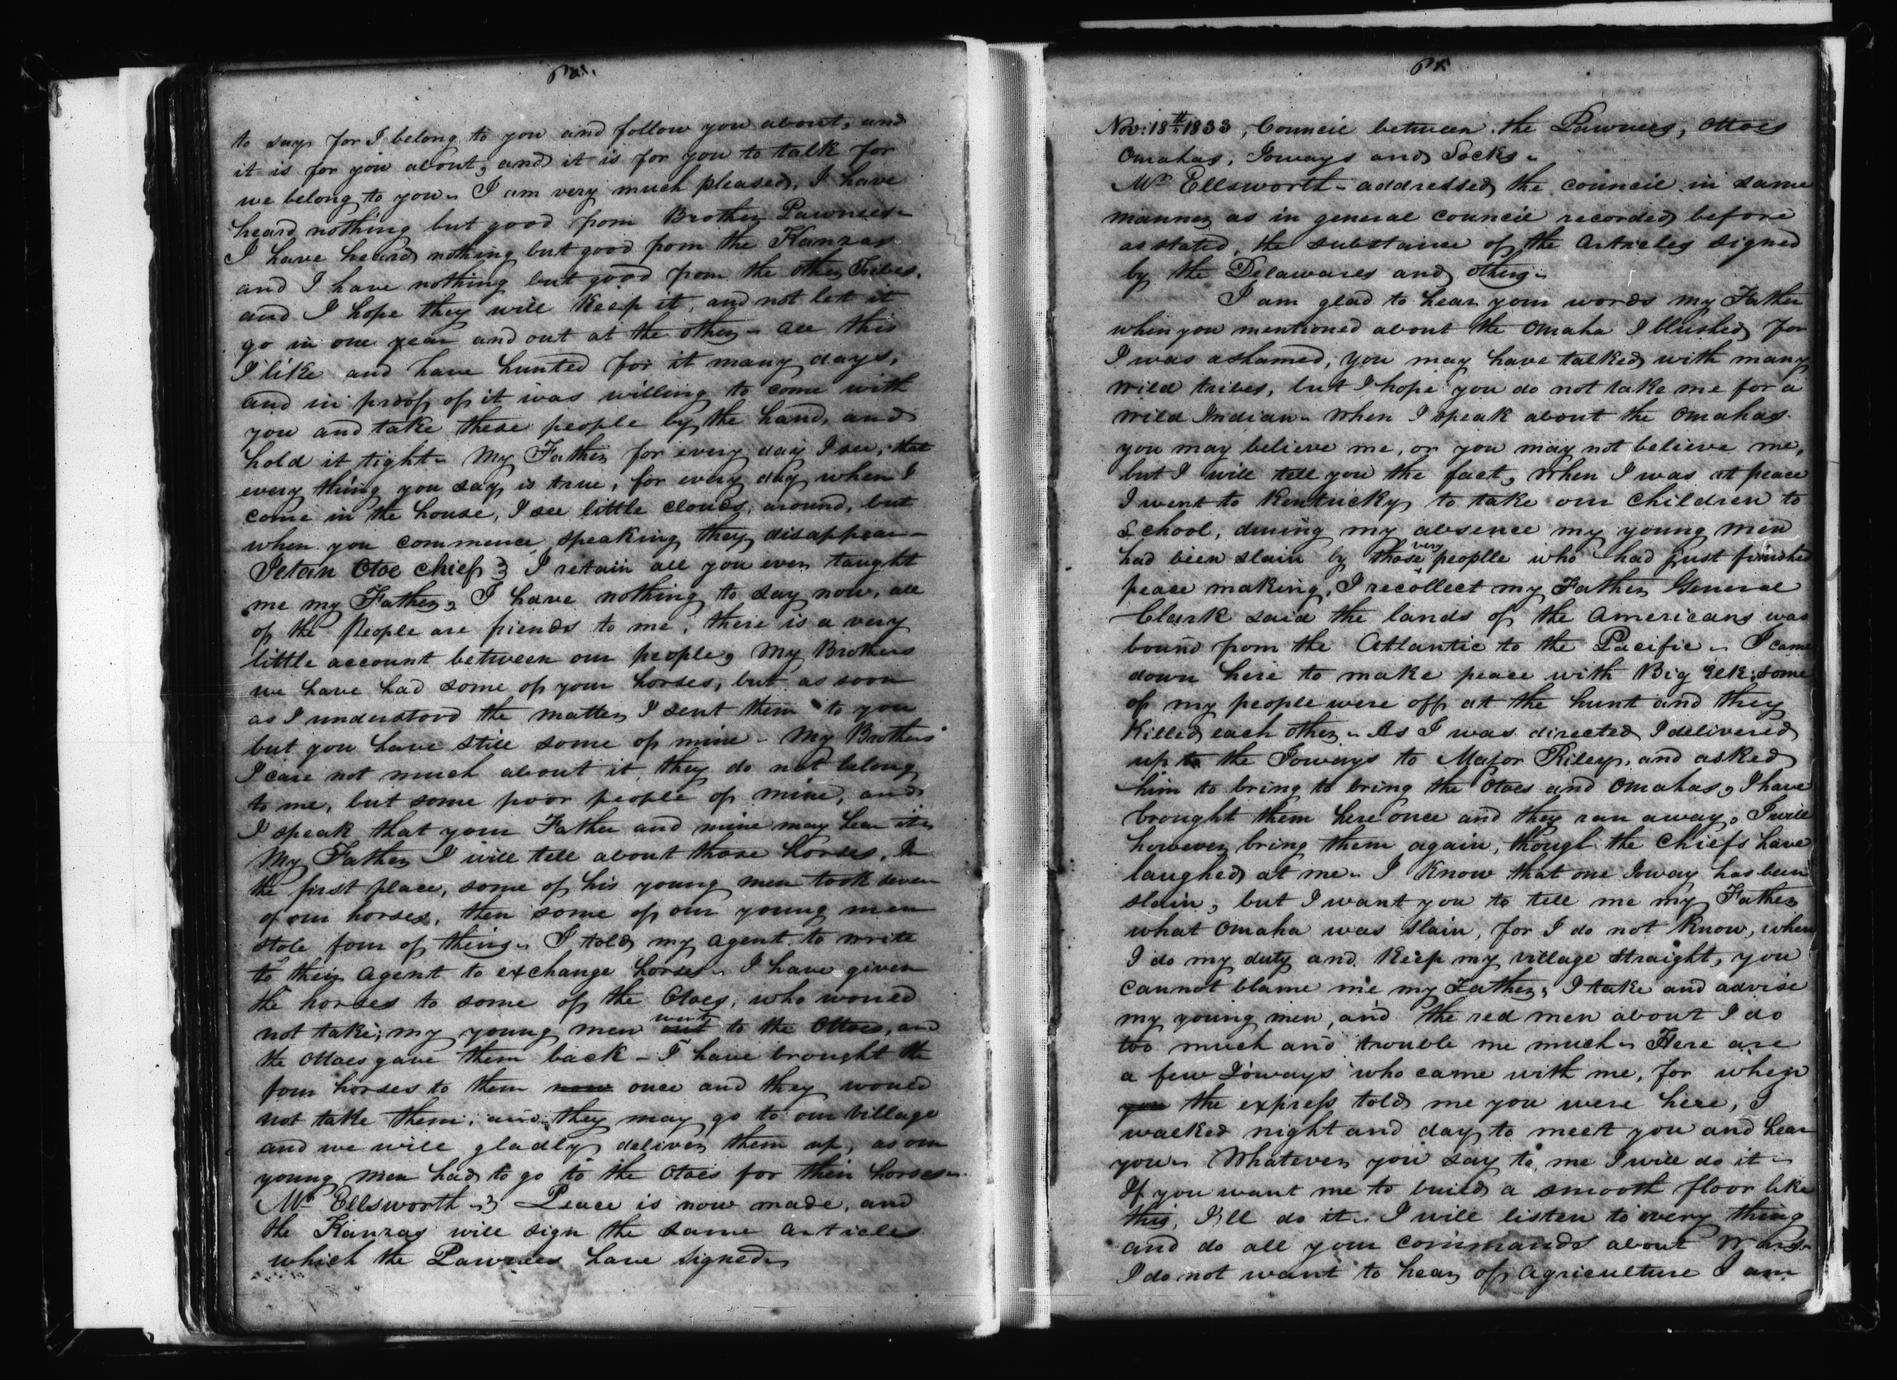 to say, for I belong to you and follow you about, and
it is for you about, and it is for you to talk for
we belong to you. I am very much pleased, I have
heard nothing but good from Brother Pawnees.
I have heard nothing but good from the Kanzas
and I have nothing but good from the other Tribes.
and I hope they will keep it, and not let it
go in one year and out at the other. All this
I like and have hunted for it many days,
and in proof of it was willing to come with
you and take these people by the hand, and
hold it tight. My Father, for every day I see, that
every thing you say is true, for every day when I
come in the house, I see little clouds, around, but
when you commence speaking they disappear—
Ietan Otoe Chief } I retain all you ever taught
me my Father, I have nothing to say now, all
of the People are friends to me, there is a very
little account between our people, My Brothers
we have had some of your horses, but as soon
as I understood the matter I sent them to you
but you have still some of mine. My Brothers
I care not much about it, they do not belong
to me, but some poor people of mine, and
I speak that your Father and mine may hear it.
My Father, I will tell about those horses. In
the first place, some of his young men took seven
of our horses, then some of our young men
stole four of theirs. I told my agent to write
to their agent to exchange horses. I have given
the horses to some of the Otoes, who would
not take; my young men went to the Ottoes, and
the Ottoes gave them back— I have brought the
four horses to them now once and they would
not take them, and they may go to our village
and we will gladly deliver them up, as our
young men had to go to the Otoes for their horses.
Mr Ellsworth } Peace is now made, and
the Kanzas will sign the same articles
which the Pawnees have signed

Nov: 18th 1833, Council between the Pawnees, Ottoes
Omahas, Ioways and Socks.
Mr Ellsworth addressed the council in same
manner as in general council recorded before
as stated, the substance of the Articles signed
by the Delawares and others.
I am glad to hear your words my Father
when you mentioned about the Omaha I blushed, for
I was ashamed, you may have talked with many
wild tribes, but I hope you do not take me for a
wild Indian. When I speak about the Omahas
you may believe me, or you may not believe me,
but I will tell you the fact, When I was at peace
I went to Kentucky to take our children to
School, during my absence my young men
had been slain by those very peoplle who had just finished
peace making, I recollect my Father General
Clark said the lands of the Americans was
bound from the Atlantic to the Pacific. I came
down here to make peace with Big Elk; some
of my people were off at the hunt and they
Killed each other. As I was directed I delivered
up to the Ioways to Major Riley, and asked
him to bring to bring the Otoes and Omahas, I have
brought them here once and they ran away. I will
however bring them again, though the Chiefs have
laughed at me. I know that one Ioway has been
slain, but I want you to tell me my Father
what Omaha was slain, for I do not know, when
I do my duty and keep my village straight, you
cannot blame me my Father, I take and advise
my young men, and the red men about I do
too much and trouble me much. Here are
a few Ioways who came with me, for when
you the express told me you were here, I
walked night and day to meet you and hear
you. Whatever you say to me I will do it.
If you want me to build a smooth floor like
this, I'll do it. I will listen to every thing
and do all your commands about War.
I do not want to hear of agriculture I am